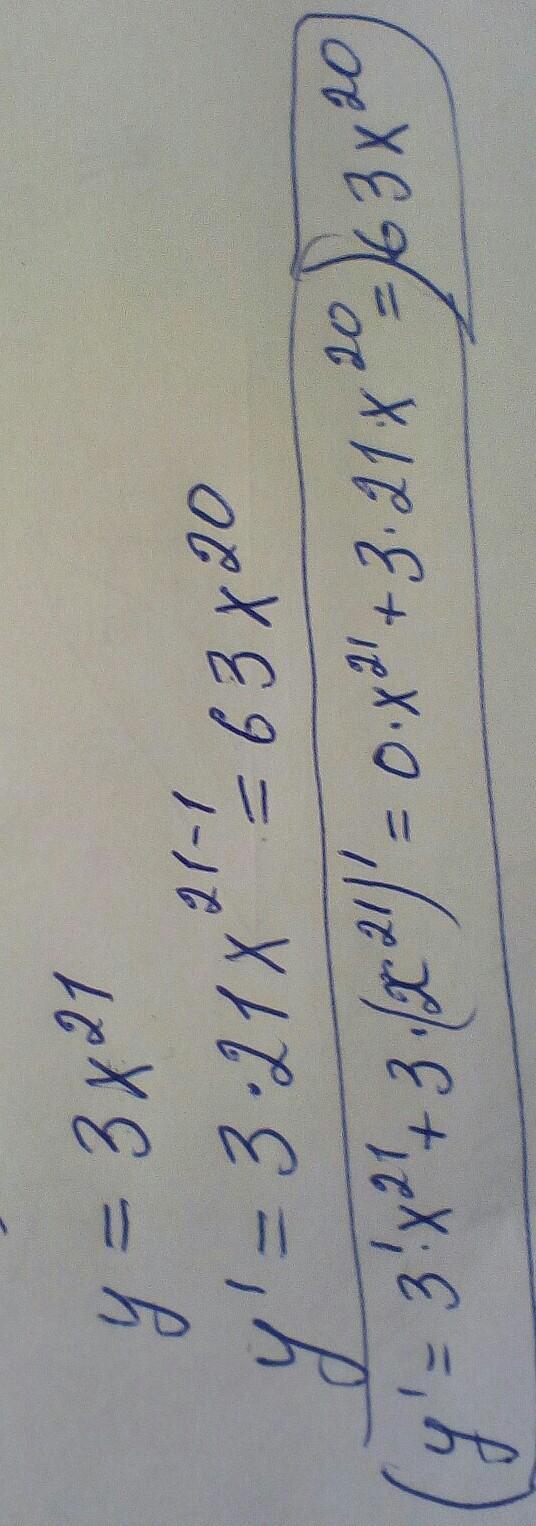 y = 3x²¹
y' = 3·21x²¹⁻¹ = 63x²⁰
(y' = 3'·x²¹ + 3·(x²¹)' = 0·x²¹ + 3·21·x²⁰ =) 63x²⁰